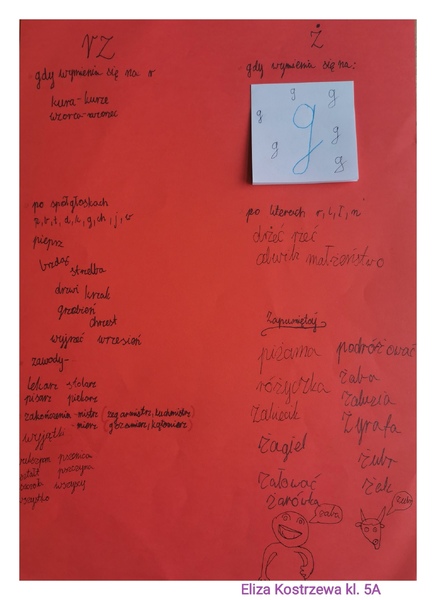 rz
gdy wymienia się na r
kura-kurze
wzorca-wzorzec
po spółgłoskach
p, b, t, d, k, g, ch, j, w
pieprz
brzdąc
strzelba
drzwi krzak
grzebień
chrzest
wyjrzeć wrzesień
zawody-
lekarz stolarz
pisarz piekarz
zakończenia -mistrz (zegarmistrz, kuchmistrz)
-mierz (gazomierz, kątomierz)
wyjątki
pszenica
pszczoła
wszyscy
ż
gdy wymienia się na:
g g
g g
g
g g
po literach r, l, ł, n
drżeć rżeć
małżeństwo
Zapamiętaj
piżama podróżować
różyczka żaba
żaluzja
Żagiel Żyrafa
żubr
Żałować żuk
żarówka
żaba
żubr
Eliza Kostrzewa kl. 5A